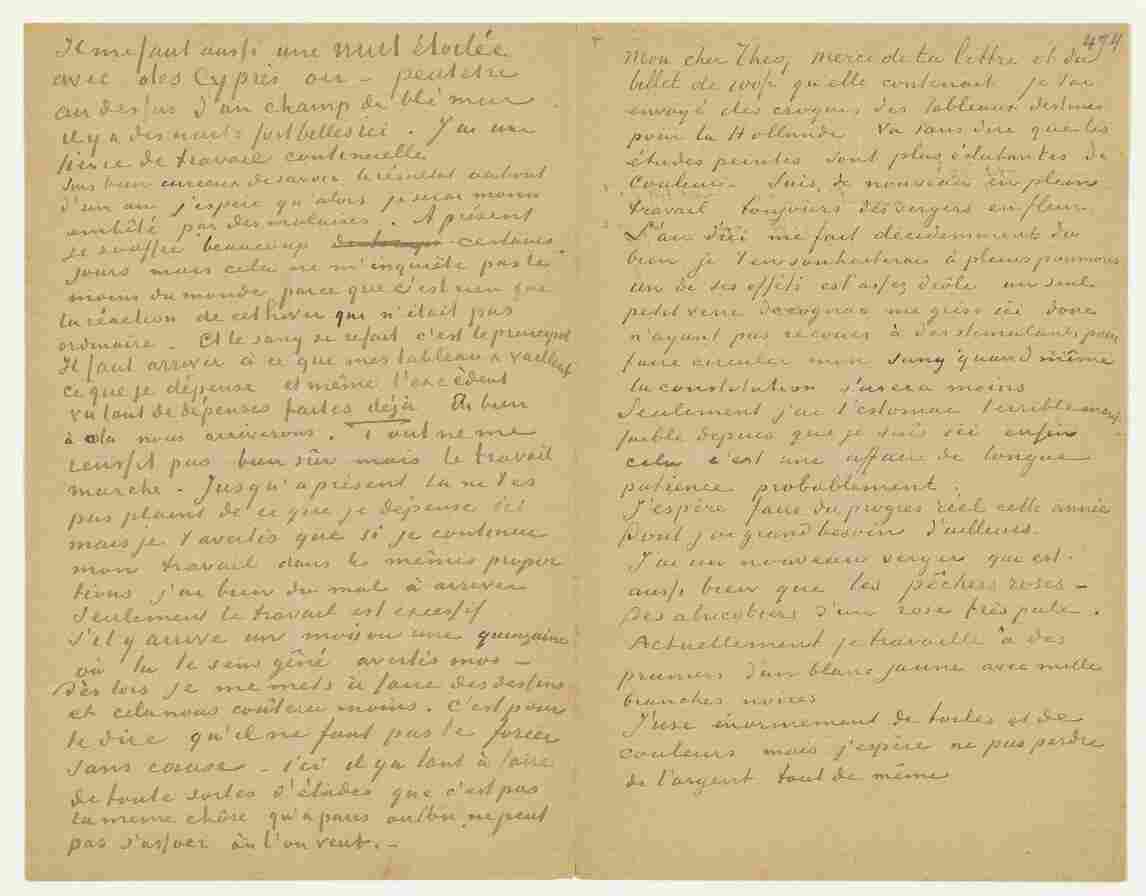 Il me faut aussi une nuit étoilée
avec des cyprès ou – peutetre
au dessus d'un champ de blé mur
il y a des nuits fort belles ici. J'ai une
fievre de travail continuelle
Suis bien curieux de savoir le résultat au bout
d'un an j'espère qu'alors je serai moins
embêté par des malaises. A présent
je souffre beaucoup certains
jours mais cela ne m'inquiète pas le
moins du monde parce que c'est rien que
la réaction de cet hiver qui n'était pas
ordinaire. Et le sang se refait c'est le principal
Il faut arriver à ce que mes tableaux vaillent
ce que je dépense et même l'excèdent
vu tant de dépenses faites déjà Eh bien
à cela nous arriverons. Tout ne me
reussit pas bien sûr mais le travail
marche. Jusqu'à présent tu ne t'es
pas plaint de ce que je dépense ici
mais je t'avertis que si je continue
mon travail dans les mêmes propor
tions j'ai bien du mal à arriver
Seulement le travail est excessif
S'il y arrive un mois ou une quinzaine
où tu te sens gêné avertis moi –
Dès lors je me mets à faire des dessins
et cela nous coûtera moins. C'est pour
te dire qu'il ne faut pas te forcer
sans cause – ici il y a tant à faire
de toute sortes d'études que c'est pas
la meme chôse qu'à paris ou l'on ne peut
pas s'assoir où l'on veut. –
474
Mon cher Theo, merci de ta lettre et du
billet de 100 fr. qu'elle contenait je t'ai
envoyé des croquis des tableaux destinés
pour la Hollande Va sans dire que les
études peintes sont plus éclatantes de
Couleur. Suis de nouveau en plein
travail toujours des vergers en fleur.
L'air d'ici me fait decidemment du
bien je t'en souhaiterais à pleins poumons
un de ses effets est assez drôle un seul
petit verre de cognac me grise ici donc
n'ayant pas recours à des stimulants pour
faire circuler mon sang quand même
la constitution s'usera moins
Seulement j'ai l'estomac terriblement
faible depuis que je suis ici enfin
cela c'est une affaire de longue
patience probablement.
J'espère faire du progrès réel cette année
Dont j'ai grand besoin d'ailleurs.
J'ai un nouveau verger qui est
aussi bien que les pêchers roses –
des abricotiers d'un rose très pâle.
Actuellement je travaille à des
pruniers d'un blanc jaune avec mille
branches noires
J'use énormement de toiles et de
couleurs mais j'espère ne pas perdre
de l'argent tout de même